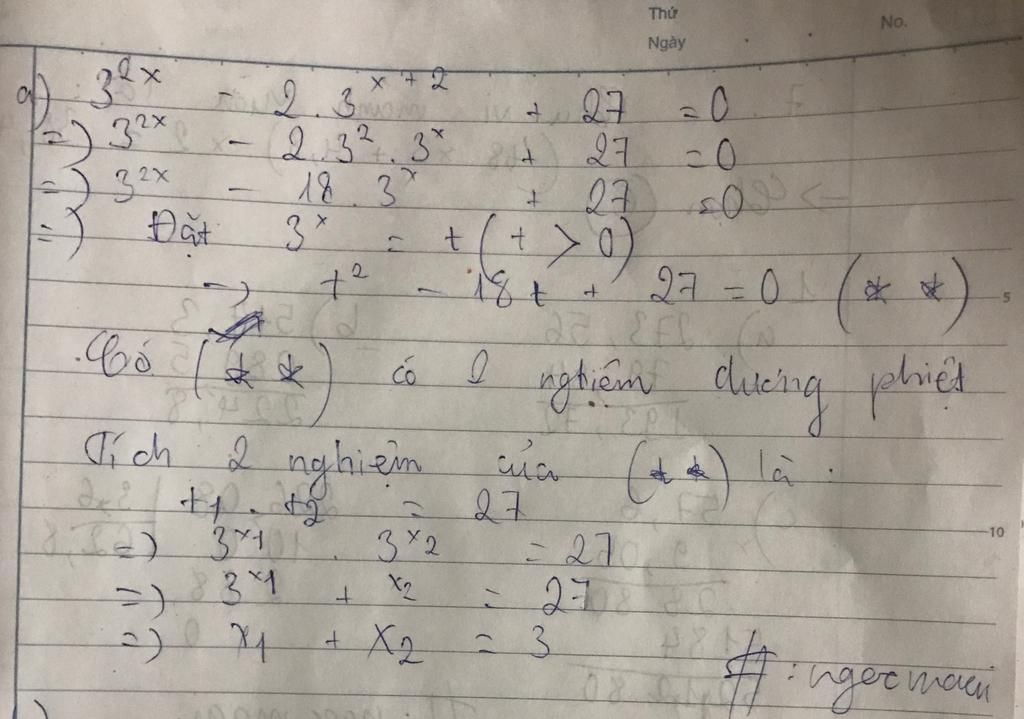 Thứ
No.
Ngày
a) 3^{2x} - 2 . 3^{x + 2} + 27 = 0
=) 3^{2x} - 2. 3^2 . 3^x + 27 = 0
=) 3^{2x} - 18 . 3^x + 27 = 0
=) Đặt 3^x = t (t > 0)
→ t^2 - 18 t + 27 = 0 (* *)
5
Có (* *) có 2 nghiệm dương phiệt
Tích 2 nghiệm của (* *) là :
t1 . t2 = 27
10
=) 3^{x1} . 3^{x2} = 27
=) 3^{x1 + x2} = 27
=) x1 + x2 = 3
# : ngocmaeu